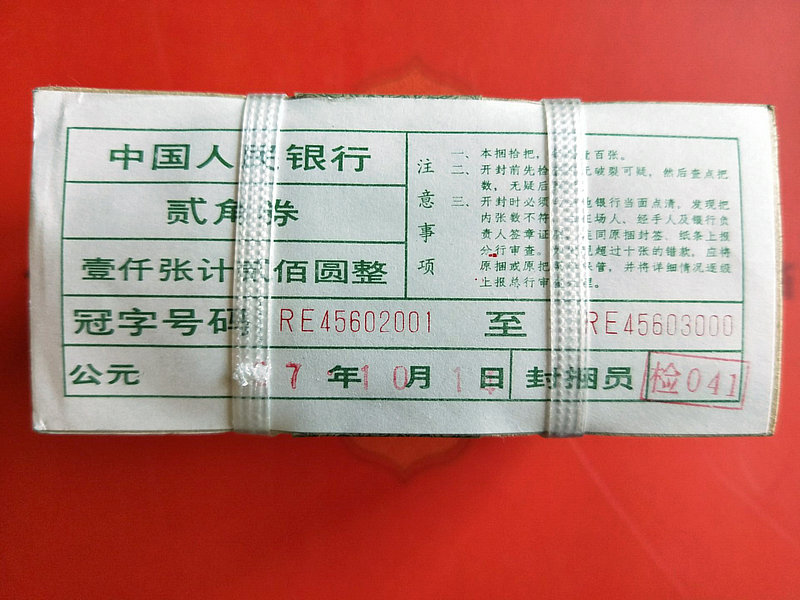 中国人民银行
贰角券
壹仟张计贰佰圆整
注意事项
一、本捆拾把，百张。
二、开封前先检破裂可疑，然后查点把
数，无疑后
三、开封时必须银行当面点清，发现把
内张数不符在场人、经手人及银行负
责人签章证同原捆封签、纸条上报
分行审查。超过十张的错款，应将
原捆或原把保管，并将详细情况逐级
上报总行审
冠字号码 RE45602001 至 RE45603000
公元 7年10月1日 封捆员 检041